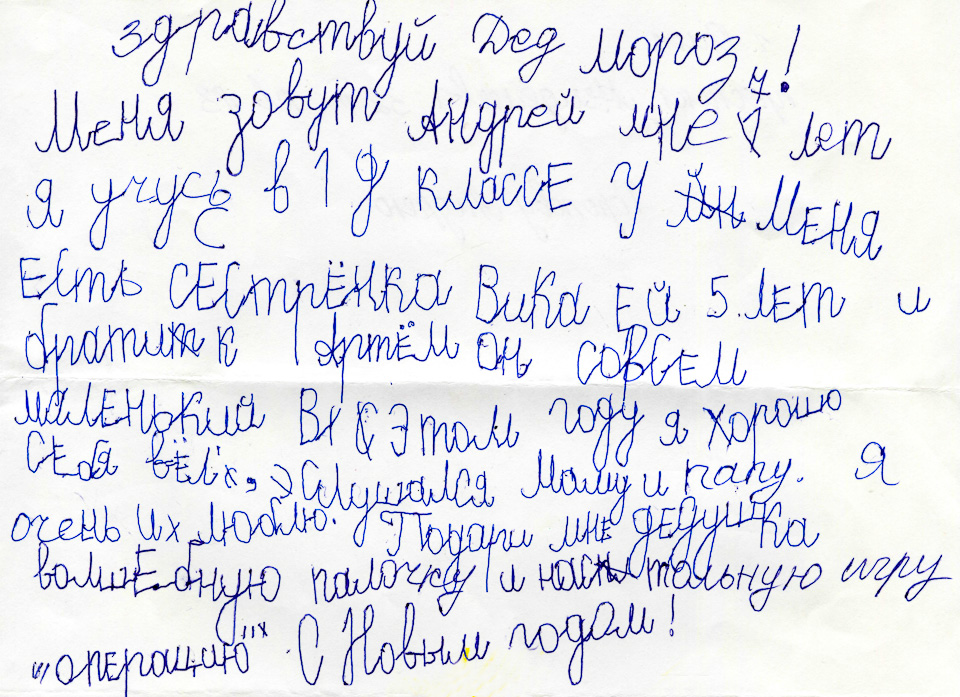 здравствуй Дед мороз!
Меня зовут Андрей мне 7 лет
я учусь в 1 Д классЕ У МЕНЯ
ЕСть СЕСтрЁНКа ВиКа ЕЙ 5 лЕт и
братик Артём он совсем
малЕНький В этом году я хорошо
СЕбя вёл, Слушался маму и папу. Я
очень их люблю. Подари мне дЕдушка
волшЕбную палочку и настольную игру
"операцию" С Новым годом!